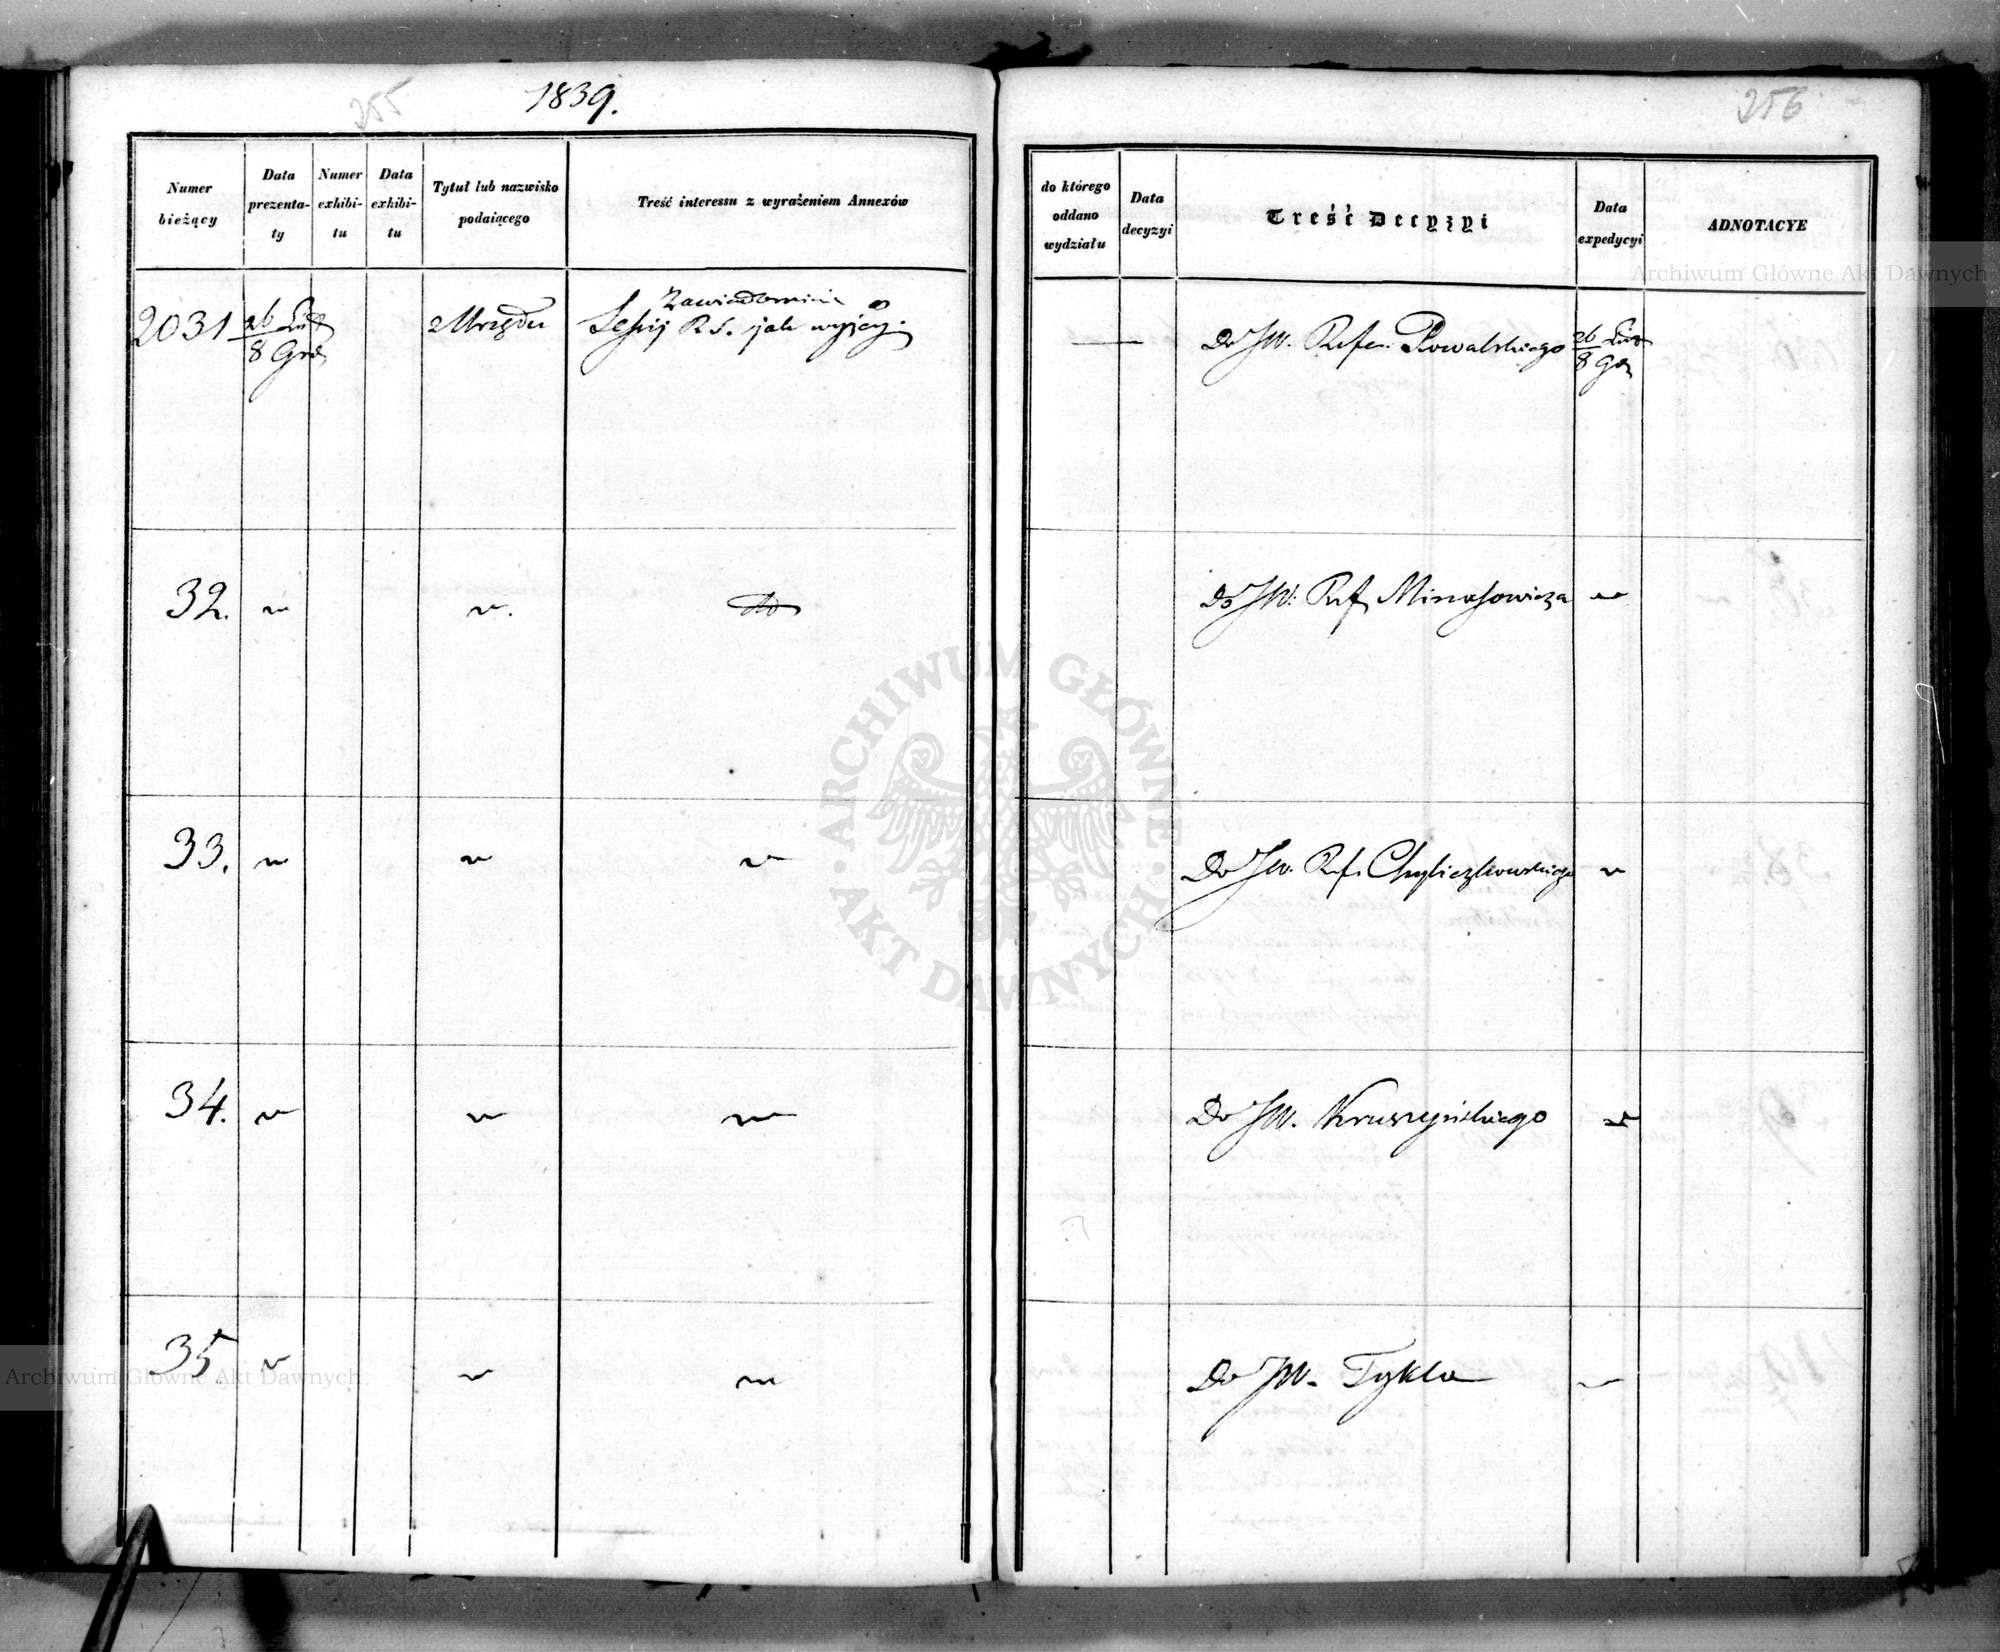 255
1839.
Numer bieżący
Data prezenta-ty
Numer exhibi-tu
Data exhibi-tu
Tytuł lub nazwisko podaiącego
Treść interessu z wyrażeniem Annexów
2031
26 List
8 Gru
z Urzędu
Zawiadomienie
Sessyi R. S. jak wyjéy.
32.
do
33.
34.
35
256
do którego oddano wydziału
Data decyzyi
Treść Decyzyi
Data expedycyi
ADNOTACYE
Do JW. Refer. Powalskiego
26 List
8 Gru
Do JW. Ref. Minasowicza
Do JW. Ref. Chyliczkowskiego
Do JW. Kruszyńskiego
Do JW. Tykla
Archiwum Główne Akt Dawnych
ARCHIWUM GŁÓWNE · AKT DAWNYCH ·
Archiwum Główne Akt Dawnych